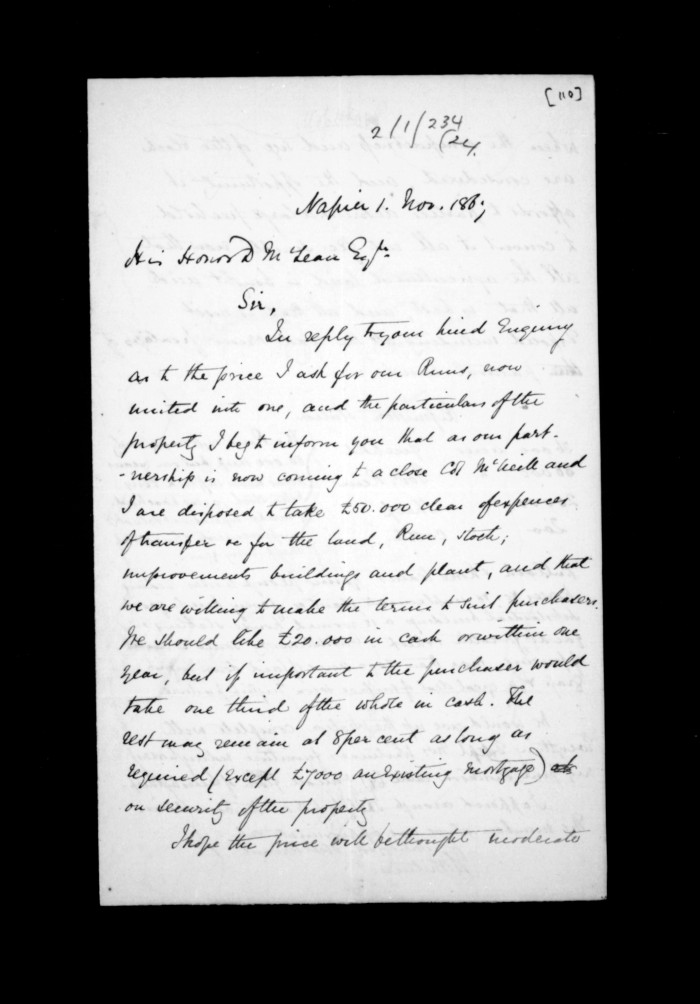 [110]
2/1/234
(24.
Napier 1. Nov. 1867
His Honor D McLean Esqre.
Sir,
In reply to your kind Enquiry
as to the price I ask for our Runs, now
united into one, and the particulars of the
property I beg to inform you that as our part-
-nership is now coming to a close Col McNeill and
I are disposed to take £50.000 clear of expences
of transfer &c for the land, Run, stock,
improvements buildings and plant, and that
we are willing to make the terms to suit purchasers.
We should like £20.000 in cash or within one
year, but if important to the purchaser would
take one third of the whole in cash. The
rest may remain at 8 per cent as long as
required (Except £7000 an Existing mortgage)
on security of the property
I hope the price will be thought moderate